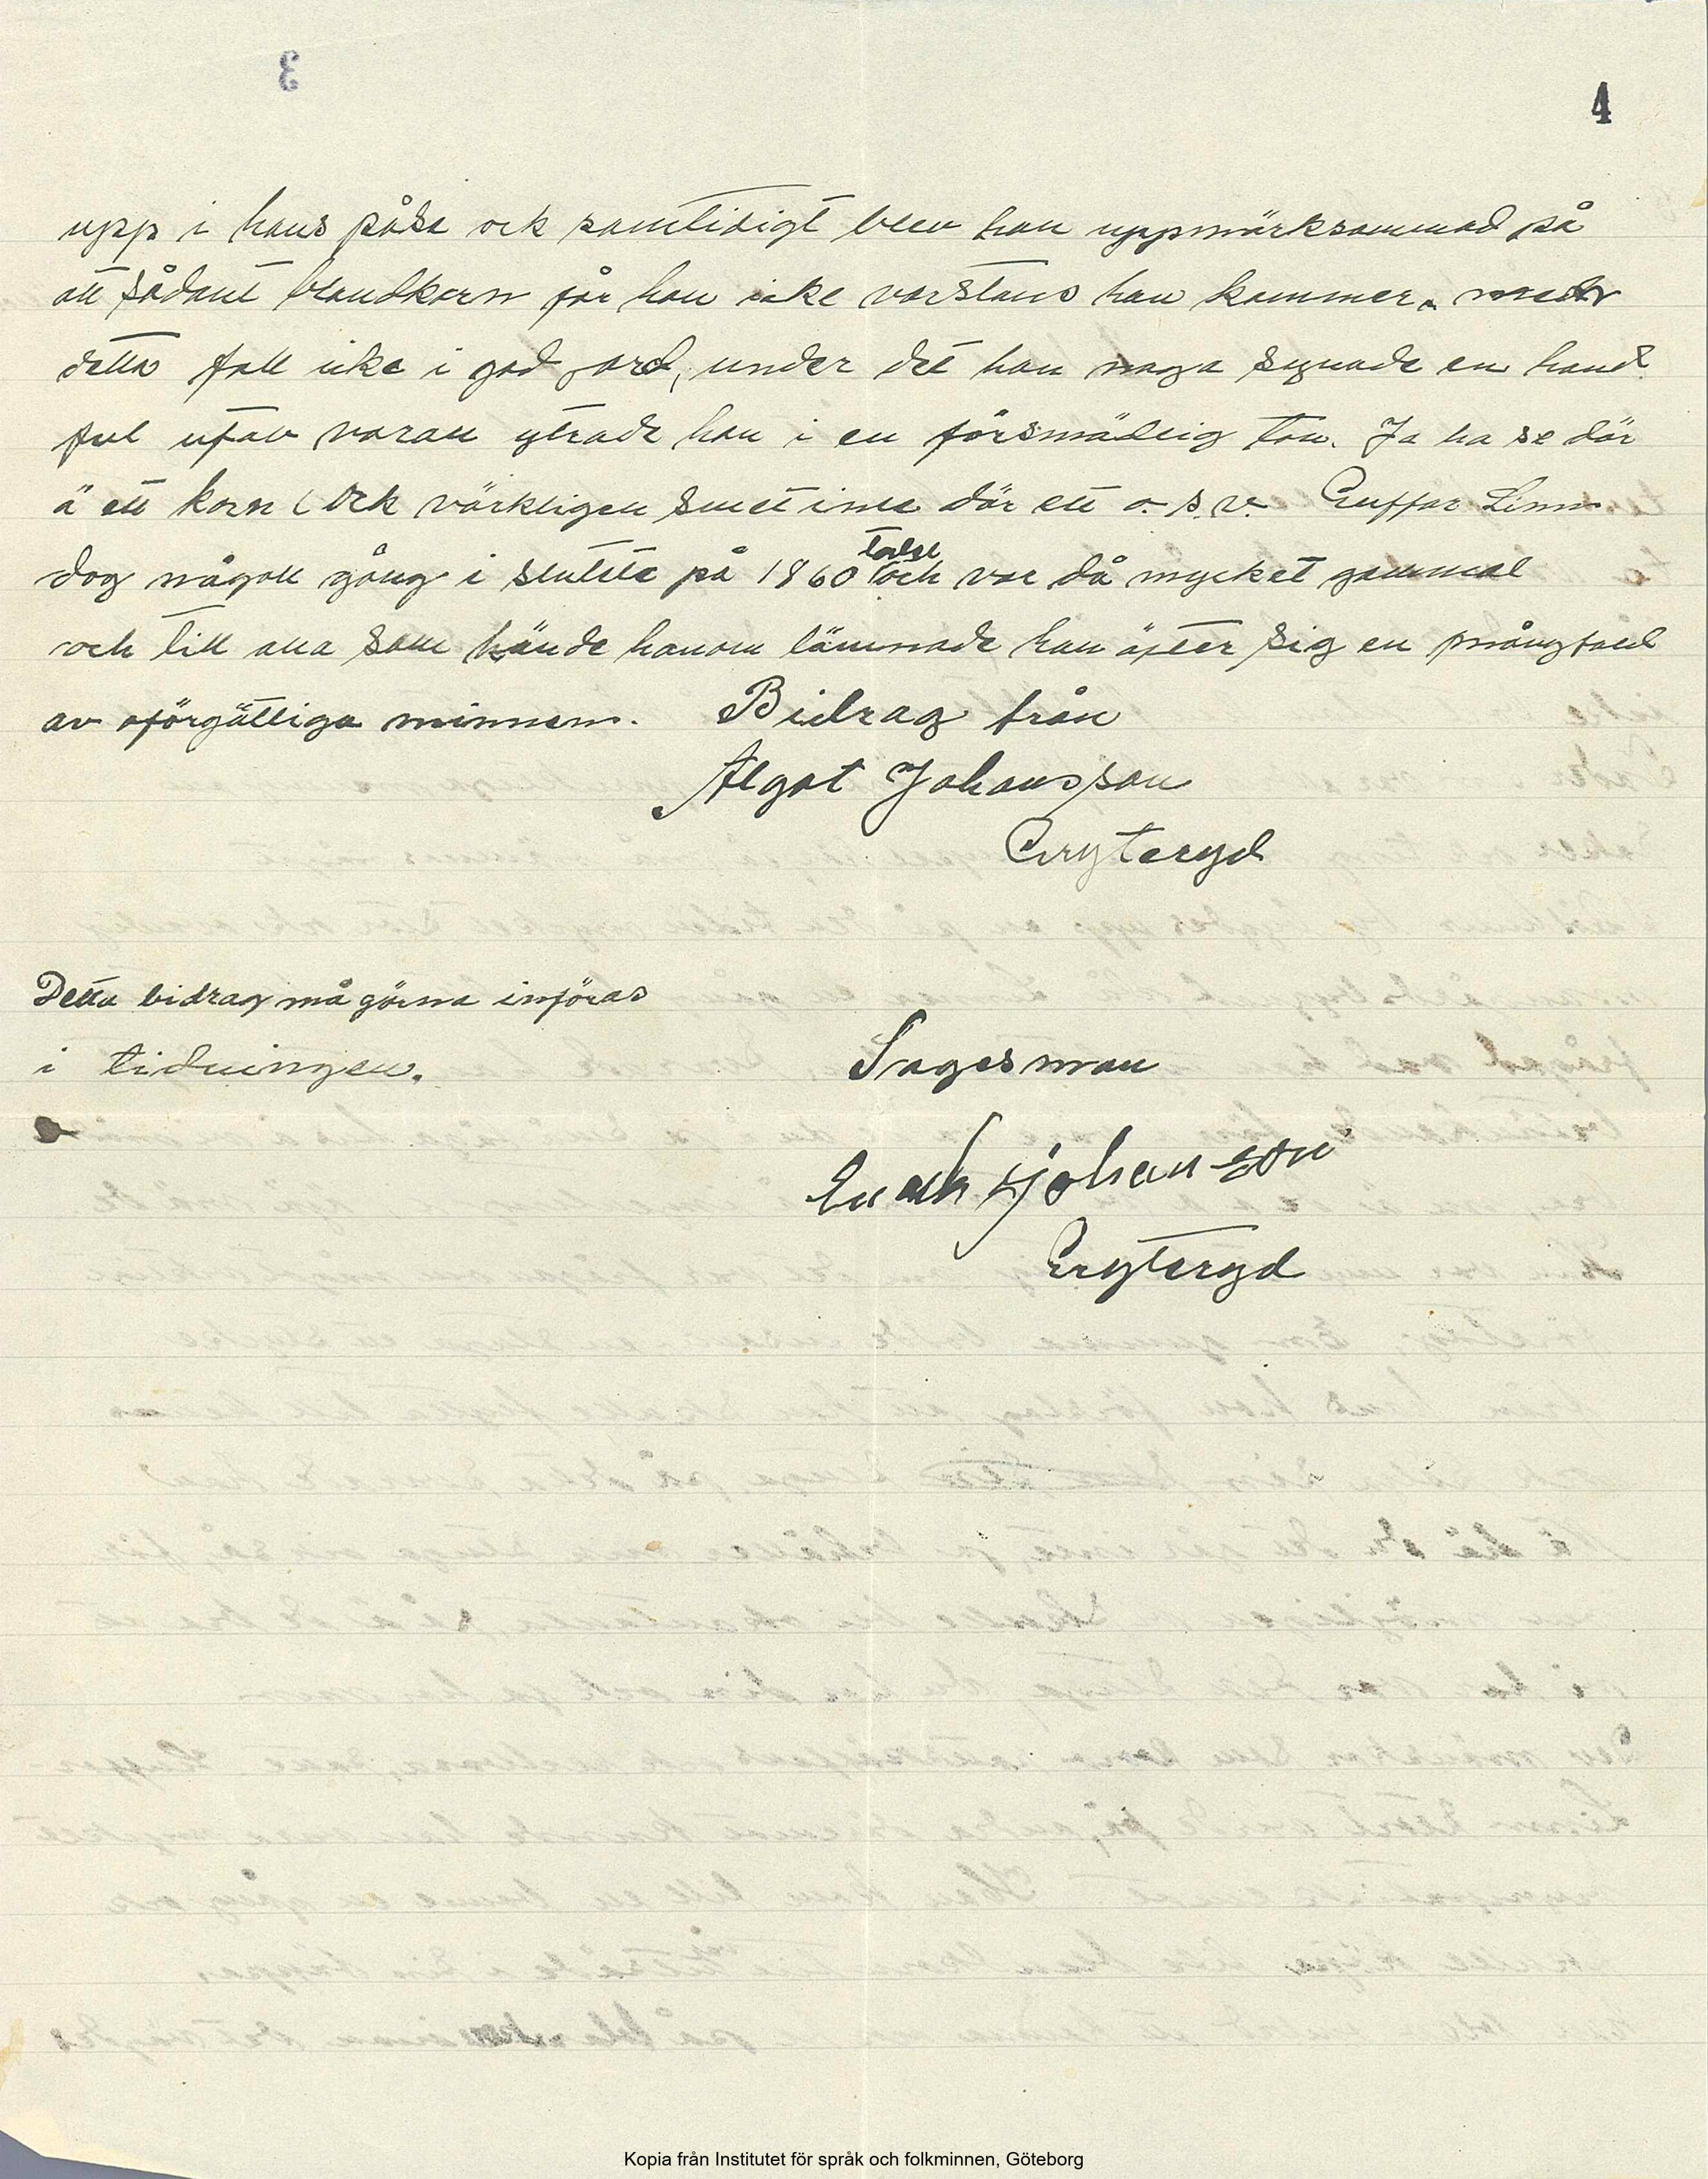 4
upp i hans påse ock samtidigt blev han uppmärksammad på
att sådant blandkorn får han icke varstans han kommer. men
detta fall icke i god jord, under det han noga synade en hand
ful utav varan ytrade han i en försmädlig ton. Ja ha se där
ä ett korn (Ock värkligen sme inte där ett o.s.v. Guffar Linn
dog någon gång i slutet på 1860 talet och var då mycket gammal
och till alla som kände honom lämnade han äfter sig en mångfald
av oförgätliga minnen. Bidrag från
Algot Johansson
Gryteryd
Detta bidrag må gärna införas
i tidningen.
Sagesman
Enok Johansson
Gryteryd
Kopia från Institutet för språk och folkminnen, Göteborg